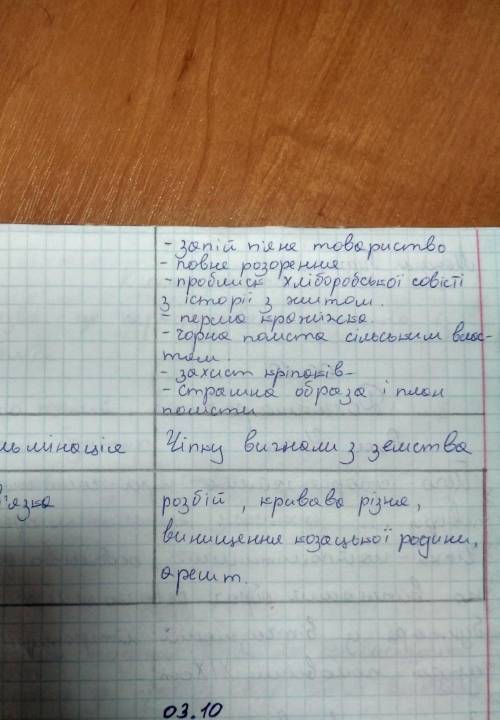 - запій піяне товариство
- повне розорення
- проблиск хліборобської совісті
з історії з житом.
- перша крадіжка.
- чорна помста сільським влас-
там.
- захист кріпаків-
- страшна образа і план
помсти
льмінація Чіпку вигнали з земства
в'язка розбій, кривава різня,
винищення козацької родини,
арешт.
03.10